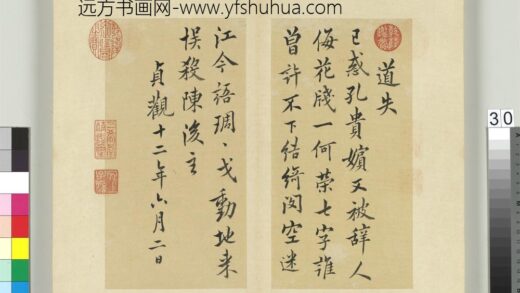 远方书画网-www.yfshuhua.com
道失
已惑孔貴嬪又被辞人
侮花牋一何荣七字誰
曾許不下結綺閣空迷
江令語琱戈動地来
悞殺陳後主
貞觀十二年六月二日
30